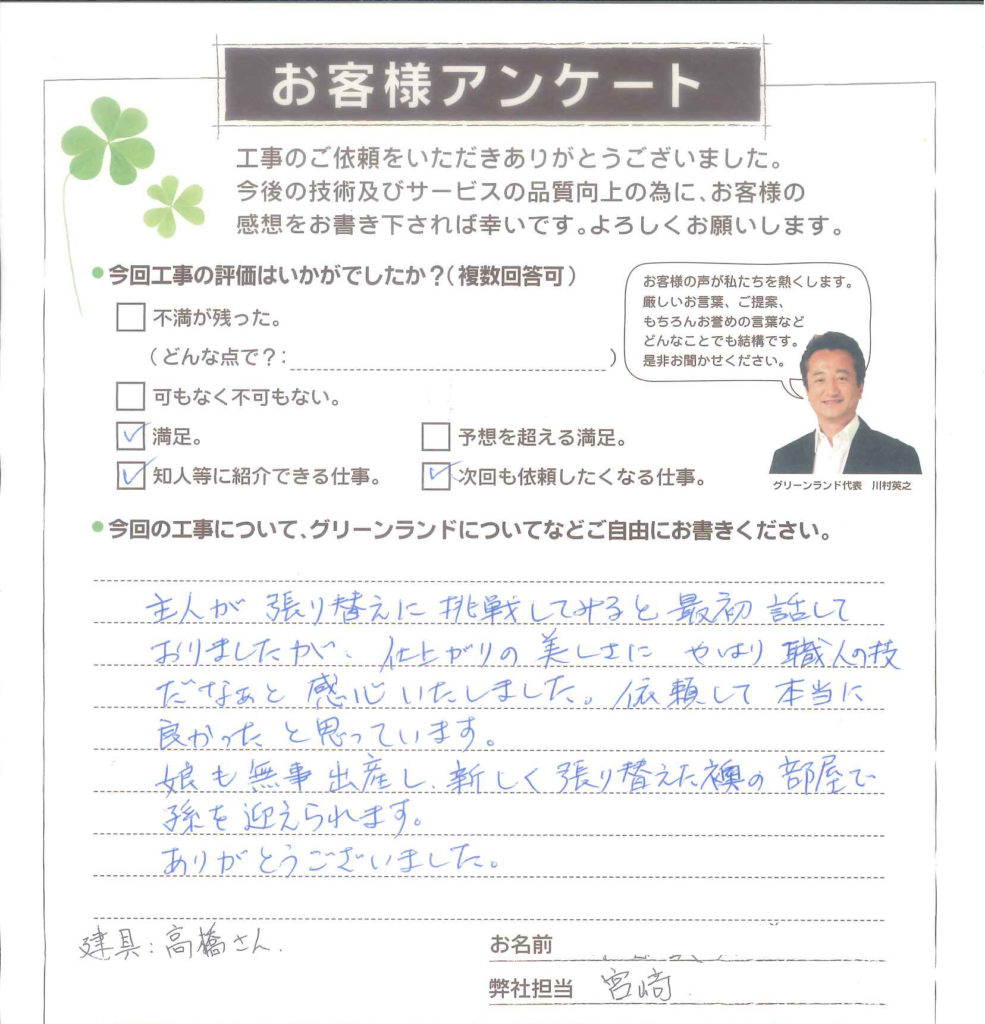 お客様アンケート
工事のご依頼をいただきありがとうございました。
今後の技術及びサービスの品質向上の為に、お客様の
感想をお書き下されば幸いです。よろしくお願いします。
今回工事の評価はいかがでしたか？(複数回答可)
お客様の声が私たちを熱くします。
厳しいお言葉、ご提案、
もちろんお誉めの言葉など
どんなことでも結構です。
是非お聞かせください。
不満が残った。
(どんな点で？: )
可もなく不可もない。
満足。
予想を超える満足。
知人等に紹介できる仕事。
次回も依頼したくなる仕事。
グリーンランド代表 川村英之
今回の工事について、グリーンランドについてなどご自由にお書きください。
主人が 張り替えに 挑戦してみると 最初 話して
おりましたが、仕上がりの 美しさに やはり 職人の技
だなぁと 感心いたしました。依頼して 本当に
良かった と思っています。
娘も 無事 出産し、新しく 張り替えた 襖の 部屋で
孫を 迎えられます。
ありがとうございました。
建具:高橋さん.
お名前
弊社担当 宮﨑